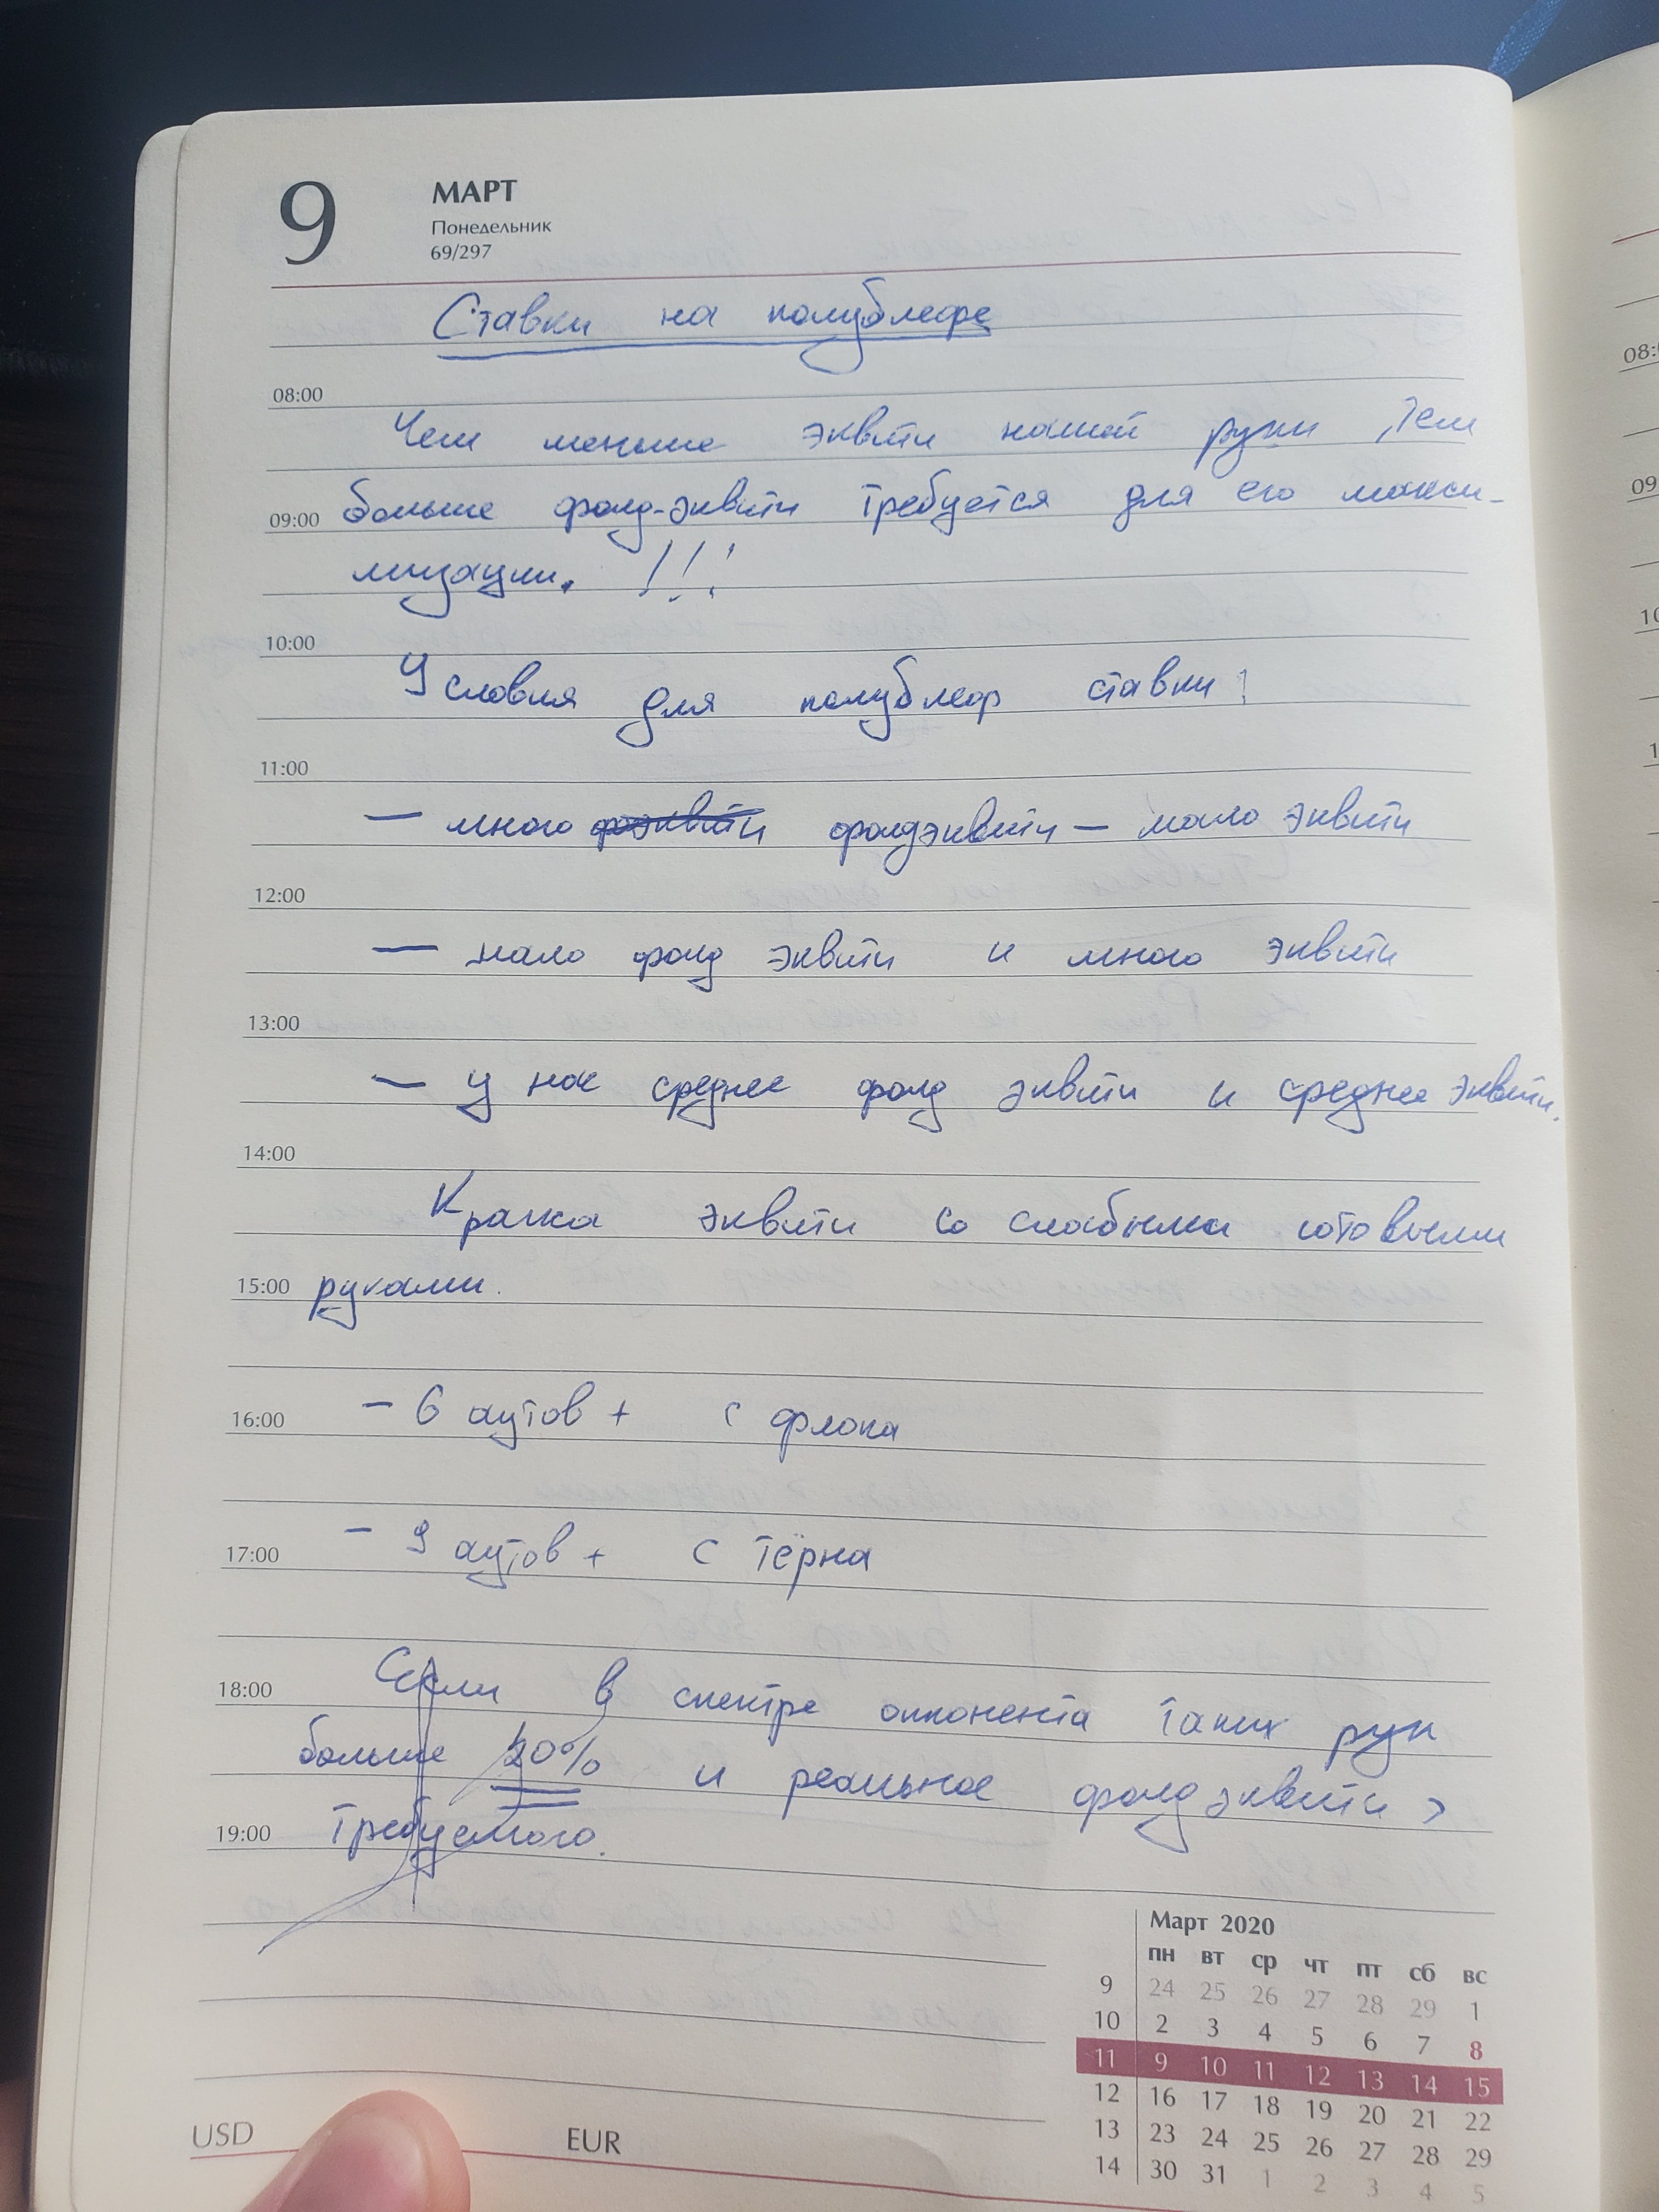 9
МАРТ
Понедельник
69/297
Ставки на полублефе
08:00
Чем меньше эквити нашей руки, тем
09:00 больше фолд-эквити требуется для его макси-
мизации. !!!
10:00
Условия для полублеф ставки:
11:00
— много фоэквити фолдэквити — мало эквити
12:00
— мало фолд эквити и много эквити
13:00
— у нас среднее фолд эквити и среднее эквити.
14:00
Кража эквити со слабыми готовыми
15:00 руками.
16:00 – 6 аутов + с флопа
17:00 – 9 аутов + с тёрна
18:00 Если в спектре оппонента таких рук
больше 20% и реальное фолд эквити >
19:00 требуемого.
Март 2020
пн вт ср чт пт сб вс
9 24 25 26 27 28 29 1
10 2 3 4 5 6 7 8
11 9 10 11 12 13 14 15
12 16 17 18 19 20 21 22
13 23 24 25 26 27 28 29
14 30 31 1 2 3 4 5
USD EUR
08:
09
10
1